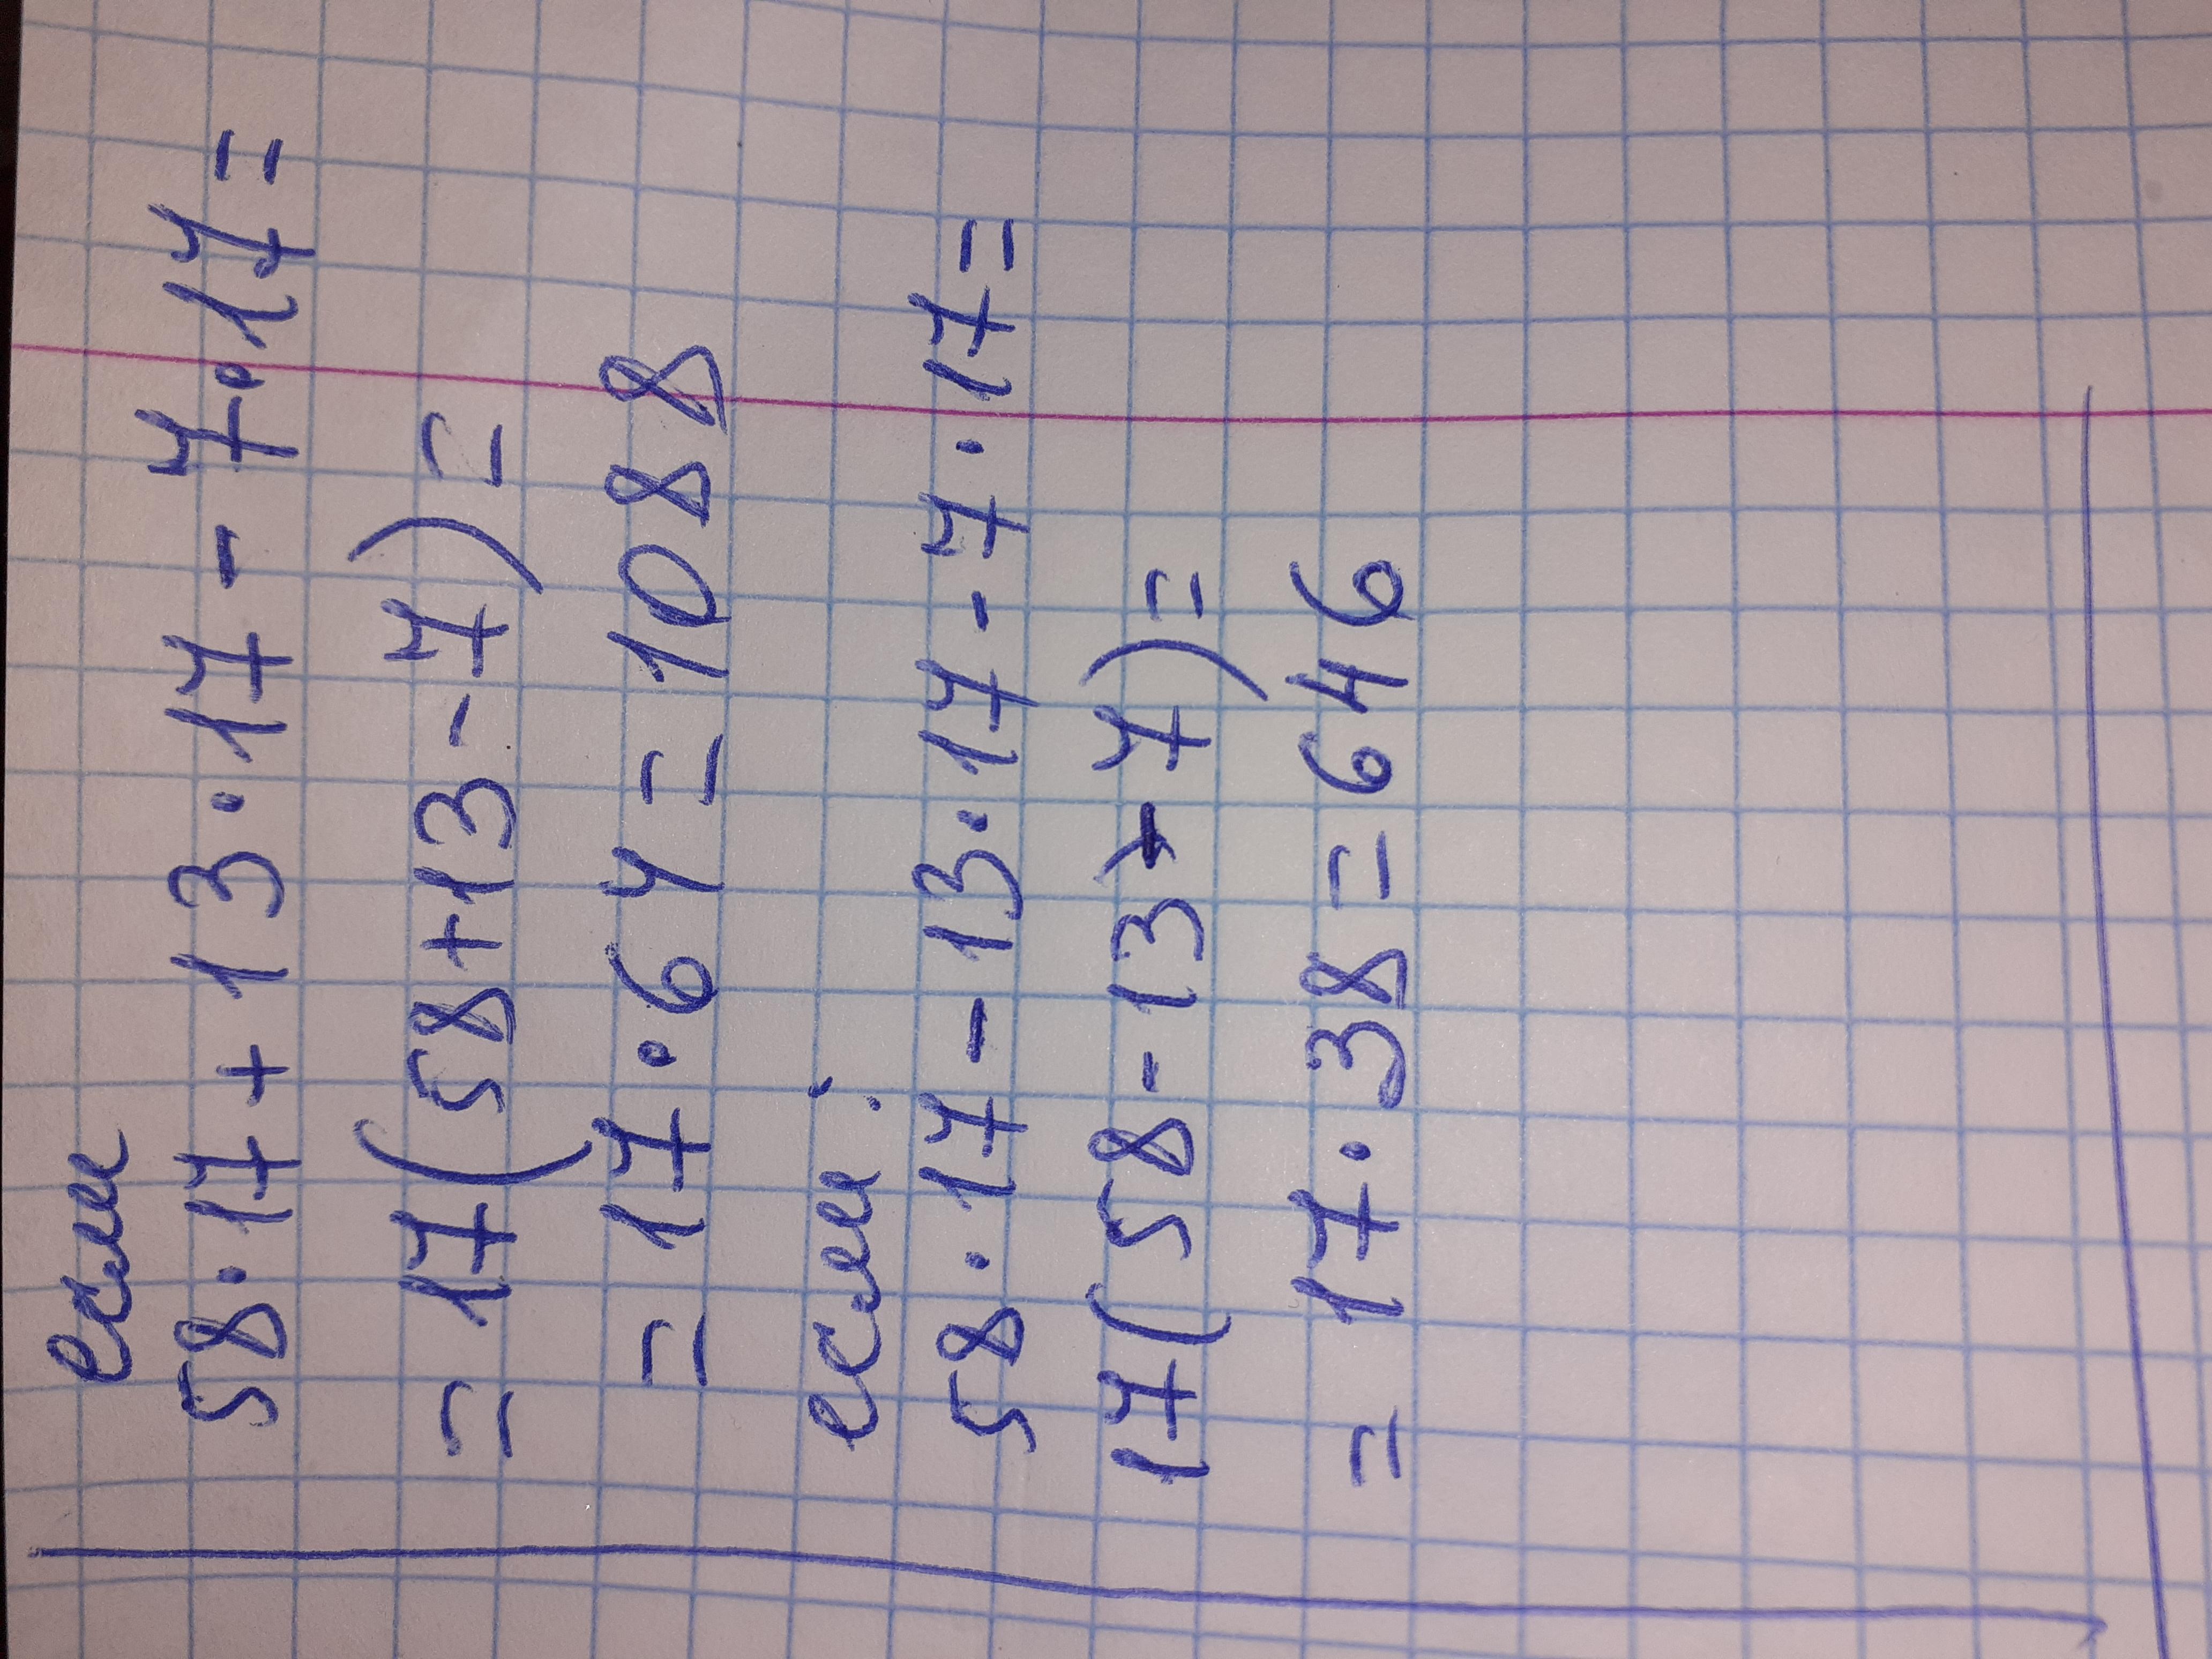 если
58·17+13·17-7·17=
=17(58+13-7)=
=17·64=1088
если:
58·17-13·17-7·17=
17(58-13+7)=
=17·38=646